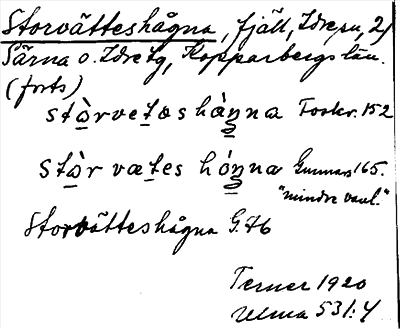 Storvätteshågna, fjäll, Idre sn, 2)
Särna o. Idre tg, Kopparbergs län.
(forts)
stàrvetəshåŋna Forskr. 152
stàr vætes hóŋna Gunnars 165.
"mindre vanl."
Storvätteshågna G. 76
Terner 1920
Ulma 531:4